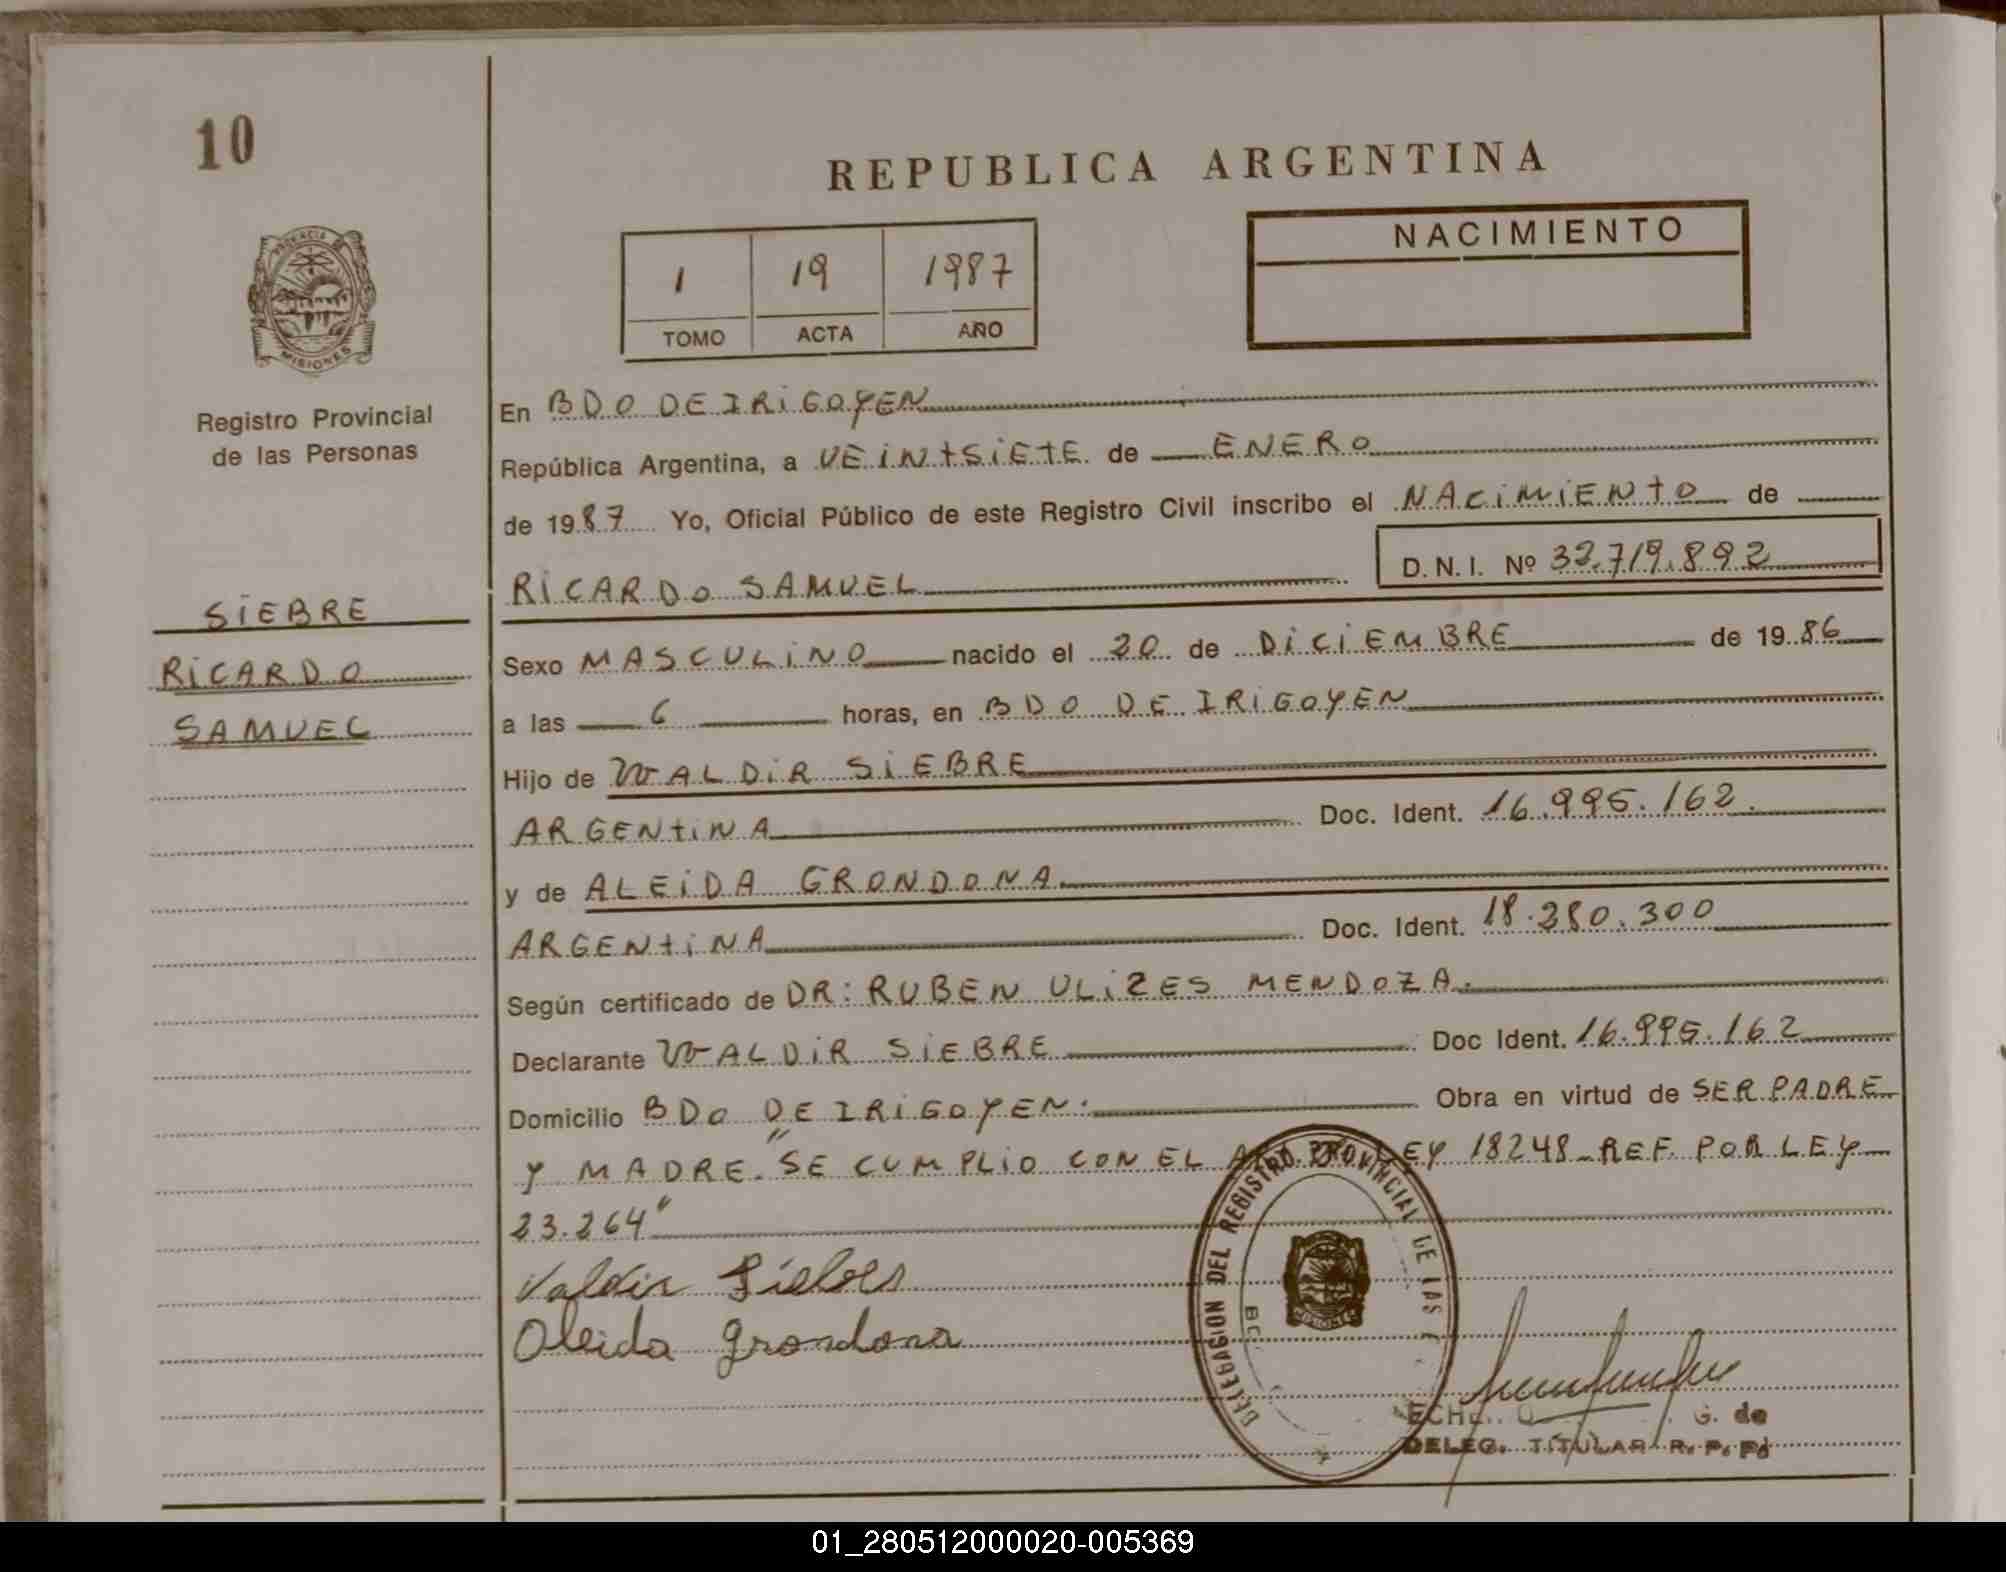 10
REPUBLICA ARGENTINA
NACIMIENTO
1 19 1987
TOMO ACTA AÑO
PROVINCIA
MISIONES
Registro Provincial
de las Personas
SIEBRE
RICARDO
SAMUEL
En BDO DE IRIGOYEN
República Argentina, a VEINTSIETE de ENERO
de 1987 Yo, Oficial Público de este Registro Civil inscribo el NACIMIENTO de
RICARDO SAMUEL D.N.I. Nº 32.719.892
Sexo MASCULINO nacido el 20 de DICIEMBRE de 1986
a las 6 horas, en BDO DE IRIGOYEN
Hijo de WALDIR SIEBRE
ARGENTINA Doc. Ident. 16.995.162.
y de ALEIDA GRONDONA
ARGENTINA Doc. Ident. 18.280.300
Según certificado de DR: RUBEN ULIZES MENDOZA.
Declarante WALDIR SIEBRE Doc Ident. 16.995.162
Domicilio BDO DE IRIGOYEN. Obra en virtud de SER PADRE
Y MADRE. "SE CUMPLIO CON EL LEY 18248 - REF. POR LEY
23.264"
Valdir
Oleida Grondona
DELEGACION DEL REGISTRO PROVINCIAL DE LAS
MISIONES
G. de
DELEG. TITULAR R. P. Pd
01_280512000020-005369